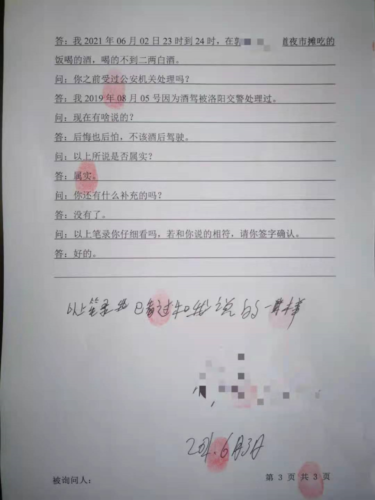 答：我 2021 年 06 月 02 日 23 时到 24 时，在 夜市摊吃的
饭喝的酒，喝的不到二两白酒。
问：你之前受过公安机关处理吗？
答：我 2019 年 08 月 05 号因为酒驾被洛阳交警处理过。
问：现在有啥说的？
答：后悔也后怕，不该酒后驾驶。
问：以上所说是否属实？
答：属实。
问：你还有什么补充的吗？
答：没有了。
问：以上笔录你仔细看吗，若和你说的相符，请你签字确认。
答：好的。
以上笔录我已看过和我说的一样
2021.6月3日
被询问人：
第 3 页 共 3 页